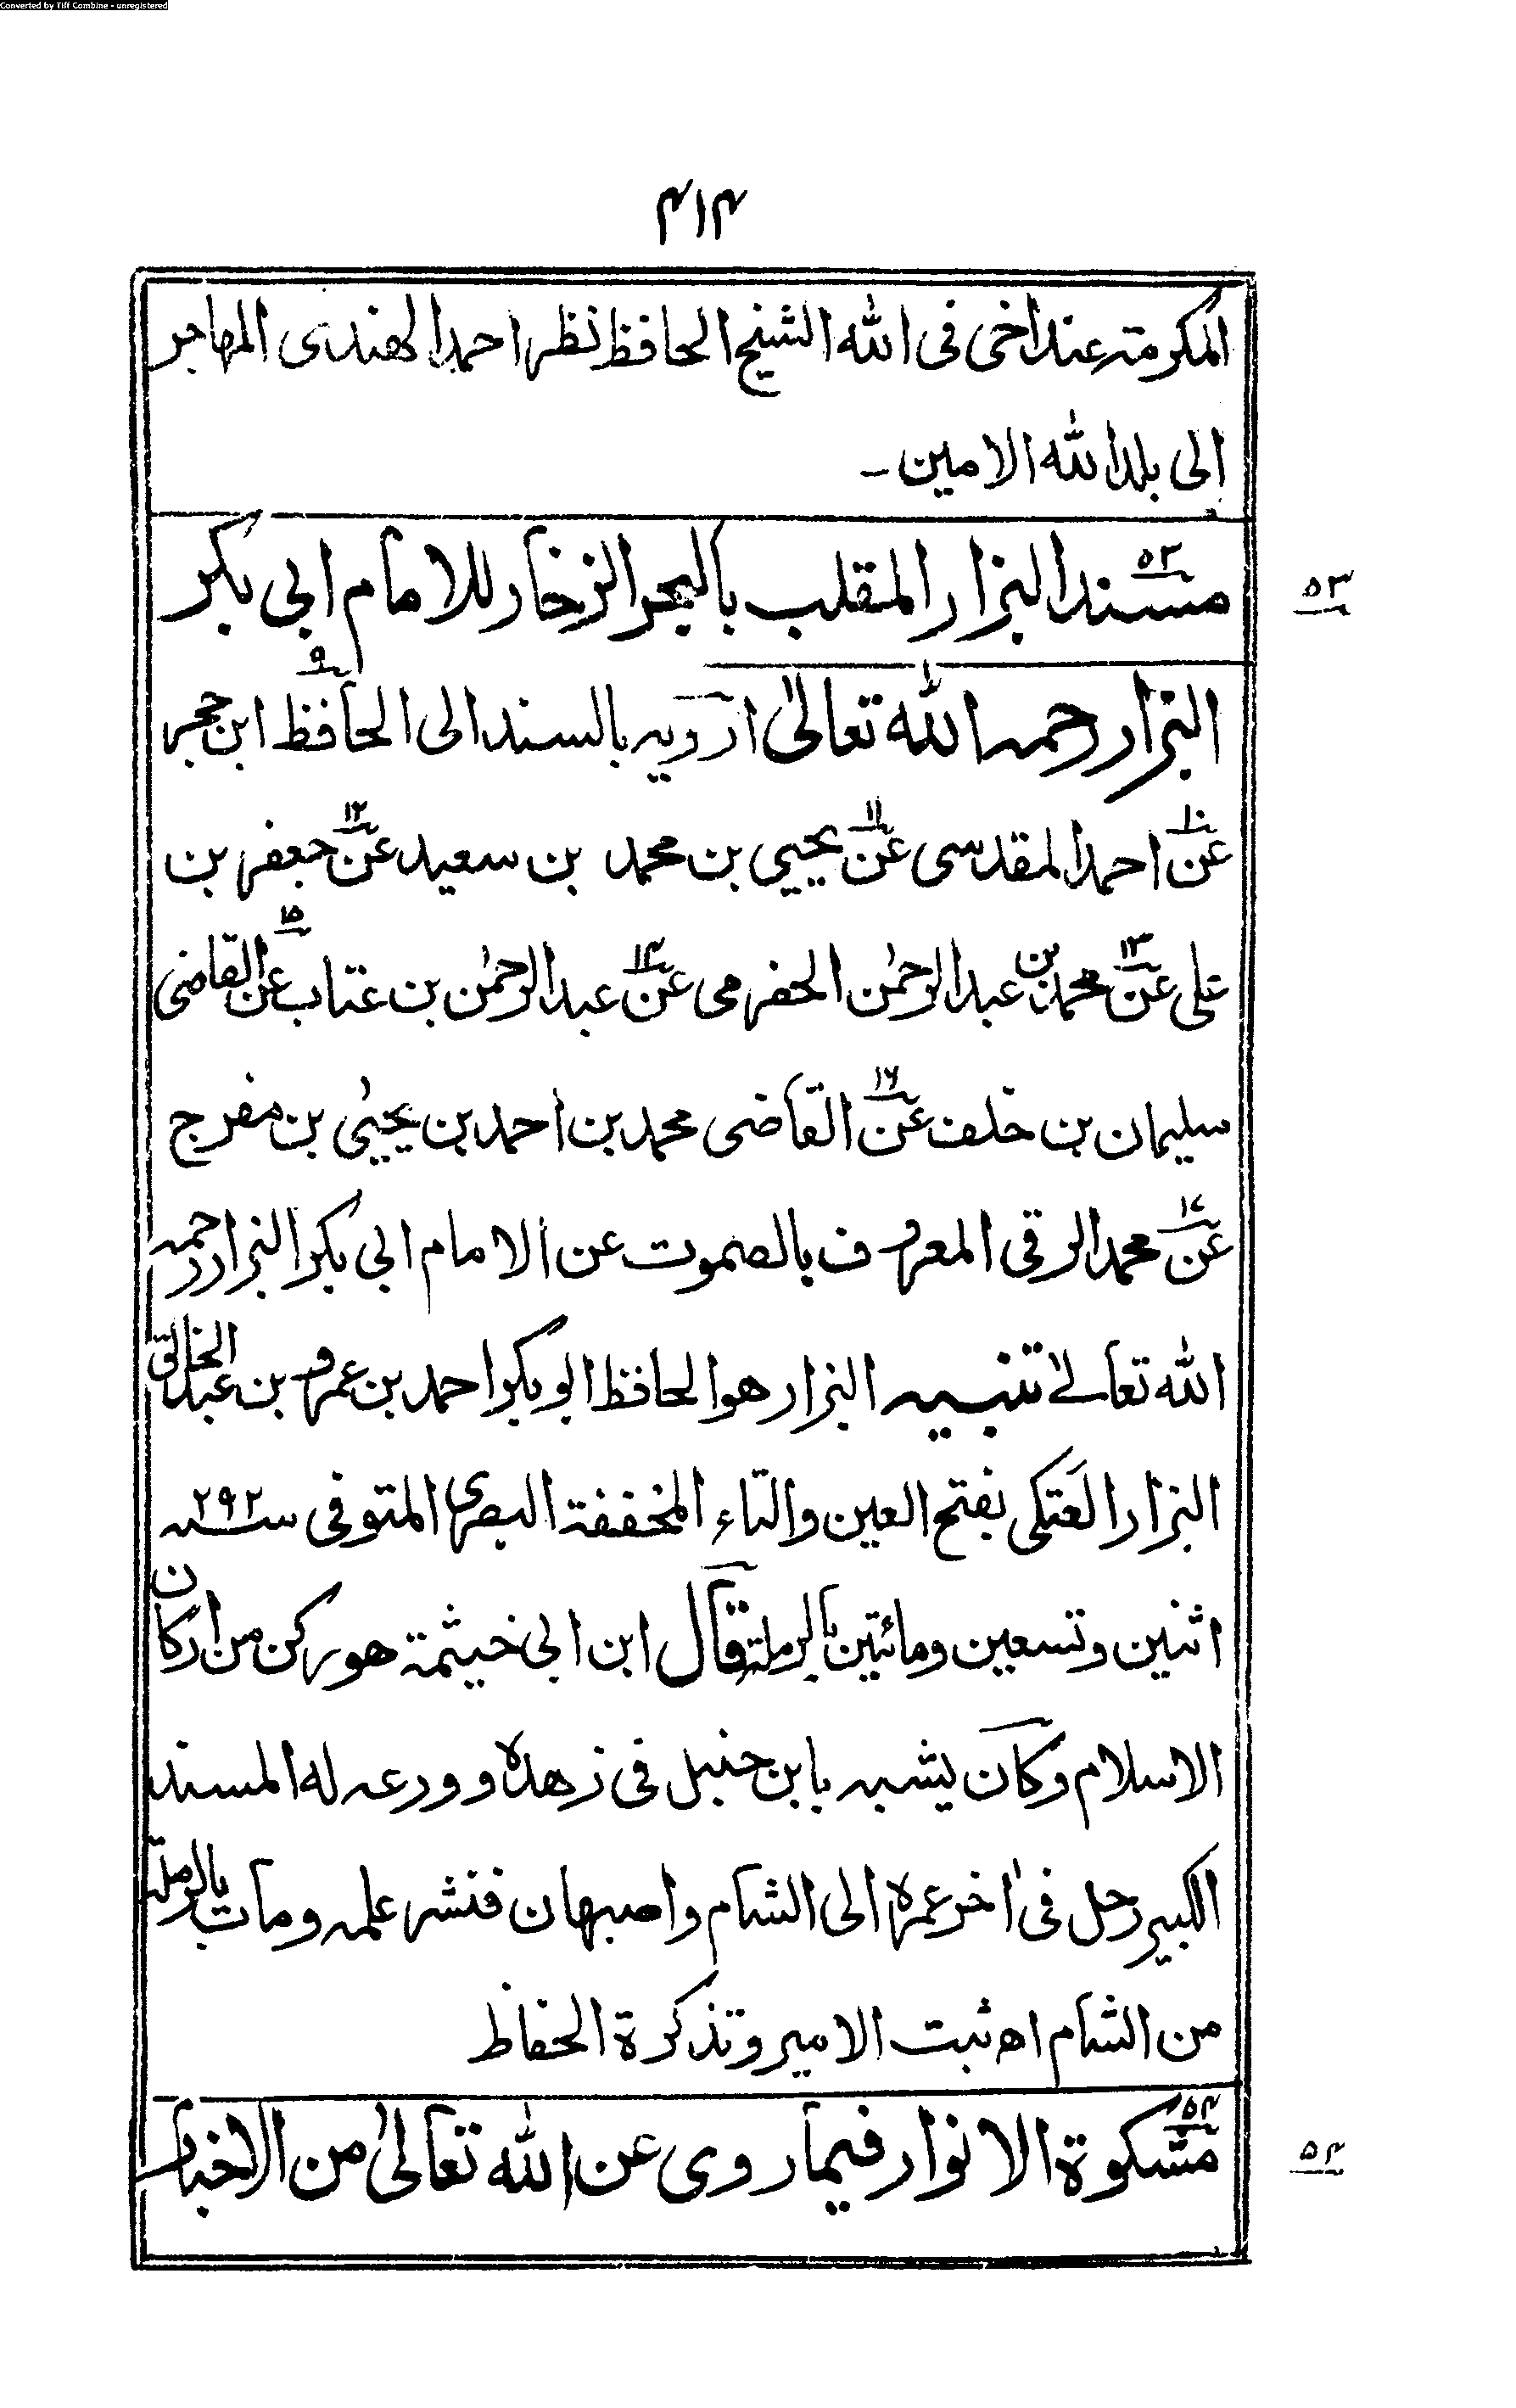 Converted by Tiff Combine - unregistered
۴۱۴
المكرمة عند اخى فى الله الشيخ الحافظ نظر احمد الهندى المهاجر
الى بلد الله الامين -
۵۳
مسند البزار المقلب بالبحر الزخار للامام ابى بكر ۵۳
البزار رحمه الله تعالىٰ ارويه بالسند الى الحافظ ۹ ابن حجر
عن ۱۰ احمد المقدسى عن ۱۱ يحيي بن محمد بن سعيد عن ۱۲ جعفر بن
على عن ۱۳ محمد بن عبد الرحمٰن الحضرمى عن ۱۴ عبد الرحمٰن بن عتاب عن ۱۵ القاضى
سليمان بن خلف عن ۱۶ القاضى محمد بن احمد بن يحيىٰ بن مفرج
عن ۱۷ محمد الرقى المعروف بالصموت عن الامام ابى بكر البزار رحمه
الله تعالے تنبيه البزار هو الحافظ ابو بكر احمد بن عمرو بن عبد الخالق
البزار العَتكى بفتح العين والتاء المخففة البصرى المتوفى سنه ۲۹۲
اثنين وتسعين ومائتين بالرملة قال ابن ابى خيثمة هو ركن من اركان
الاسلام وكان يشبه بابن حنبل فى زهده وورعه له المسند
الكبير رحل فى اٰخر عمره الى الشام واصبهان فنشر علمه ومات بالرملة
من الشام اه ثبت الامير وتذكرة الحفاظ
۵۴
مشكوة الانوار فيما روى عن الله تعالىٰ من الاخبار ۵۴